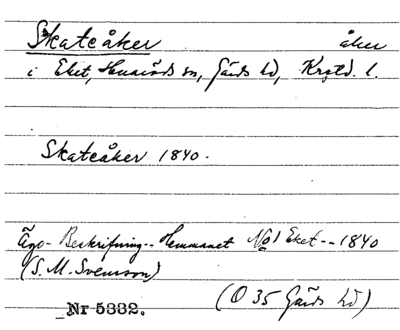 Skateåker åker
i Eket, Huaröds sn, Gärds hd, Krstd. l.
Skateåker 1840.
Ägo-Beskrifning-- Hemmanet No 1 Eket--1840
(S. M. Svensson)
Nr 5332. (O 35 Gärds hd)